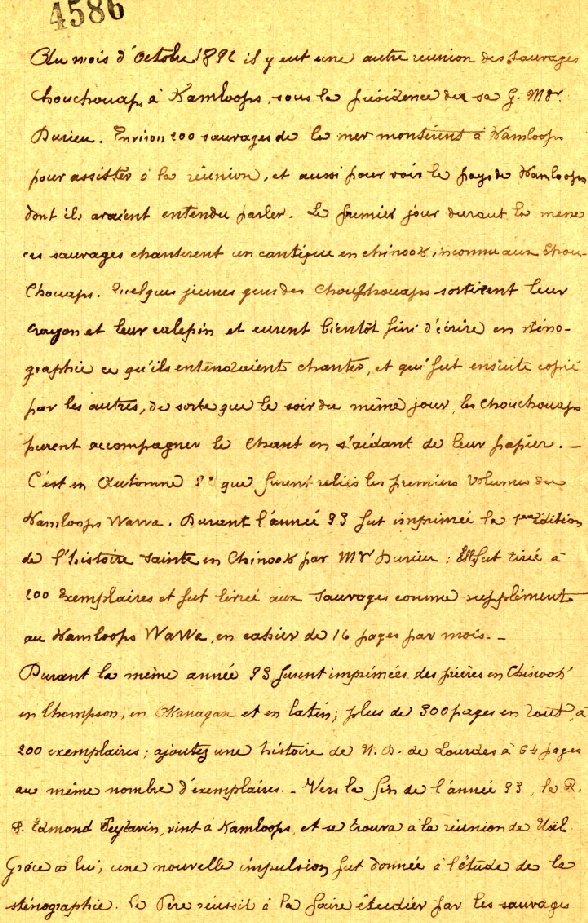 4586
Au mois d'Octobre 1892 il y eut une autre reunion des sauvages
Chouchouaps à Kamloops, sous la présidence de sa G. Mgr
Durieu. Environ 200 sauvages de la mer montèrent à Kamloops
pour assister à la réunion, et aussi pour voir le pays de Kamloops
dont ils avaient entendu parler. Le premier jour durant la messe
ces sauvages chanterent un cantique en chinook, inconnu aux Chou-
Chouaps. Quelques jeunes gens des Chouchouaps sortirent leur
crayon et leur calepin et eurent bientôt fini d'écrire en sténo-
graphie ce qu'ils entendaient chanter, et qui fut ensuite copié
par les autres, de sorte que le soir du même jour, les Chouchouaps
purent accompagner le Chant en s'aidant de leur papier. _
C'est en Automne 92 que furent reliés les premiers volumes du
Kamloops Wawa. Durant l'année 93 fut imprimée la 1ere édition
de l'histoire sainte en Chinook par Mgr Durieu; Elle fut tirée à
200 Exemplaires et fut livrée aux sauvages comme supplément
au Kamloops WaWa, en cahier de 16 pages par mois. _
Durant la même année 93 furent imprimées des prières en Chinook
en Thompson, en Okanagan et en latin; plus de 300 pages en tout, à
200 exemplaires; ajoutez une histoire de N. D. de Lourdes à 64 pages
au même nombre d'exemplaires. _ Vers la fin de l'année 93, le R.
P. Edmond Peytavin, vint à Kamloops, et se trouva à la réunion de Noël
Grâce à lui, une nouvelle impulsion fut donnée à l'étude de la
sténographie. le Père réussit à la faire étudier par les sauvages